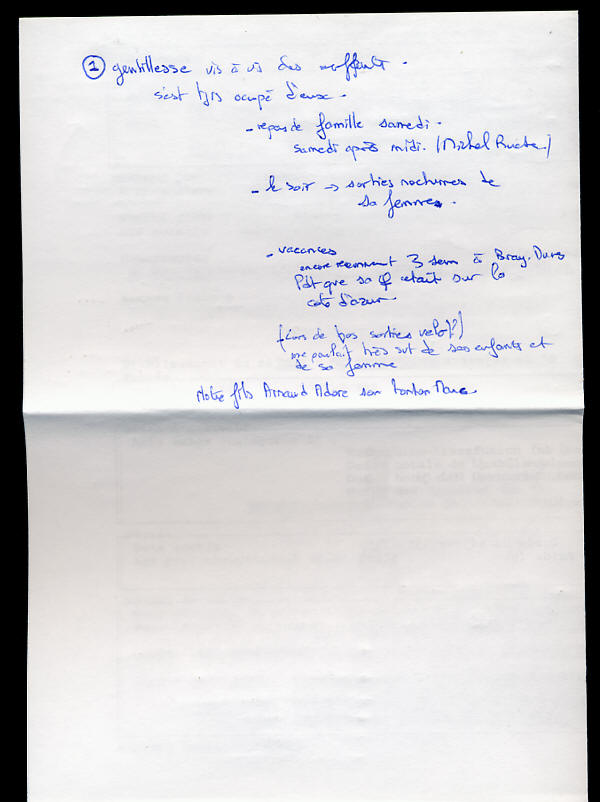 ① gentillesse vis à vis des enfants.
s'est tjrs occupé d'eux.
- repas de famille samedi.
samedi après midi. (Michel)
- le soir → sorties nocturnes de
sa femme.
- vacances
encore récemment 3 sem à Bray-Dunes
Pdt que sa ♀ était sur la
côte d'azur.
(Lors de nos sorties velo)
me parlait très svt de ses enfants et
de sa femme
Notre fils Arnaud Adore son tonton Marc